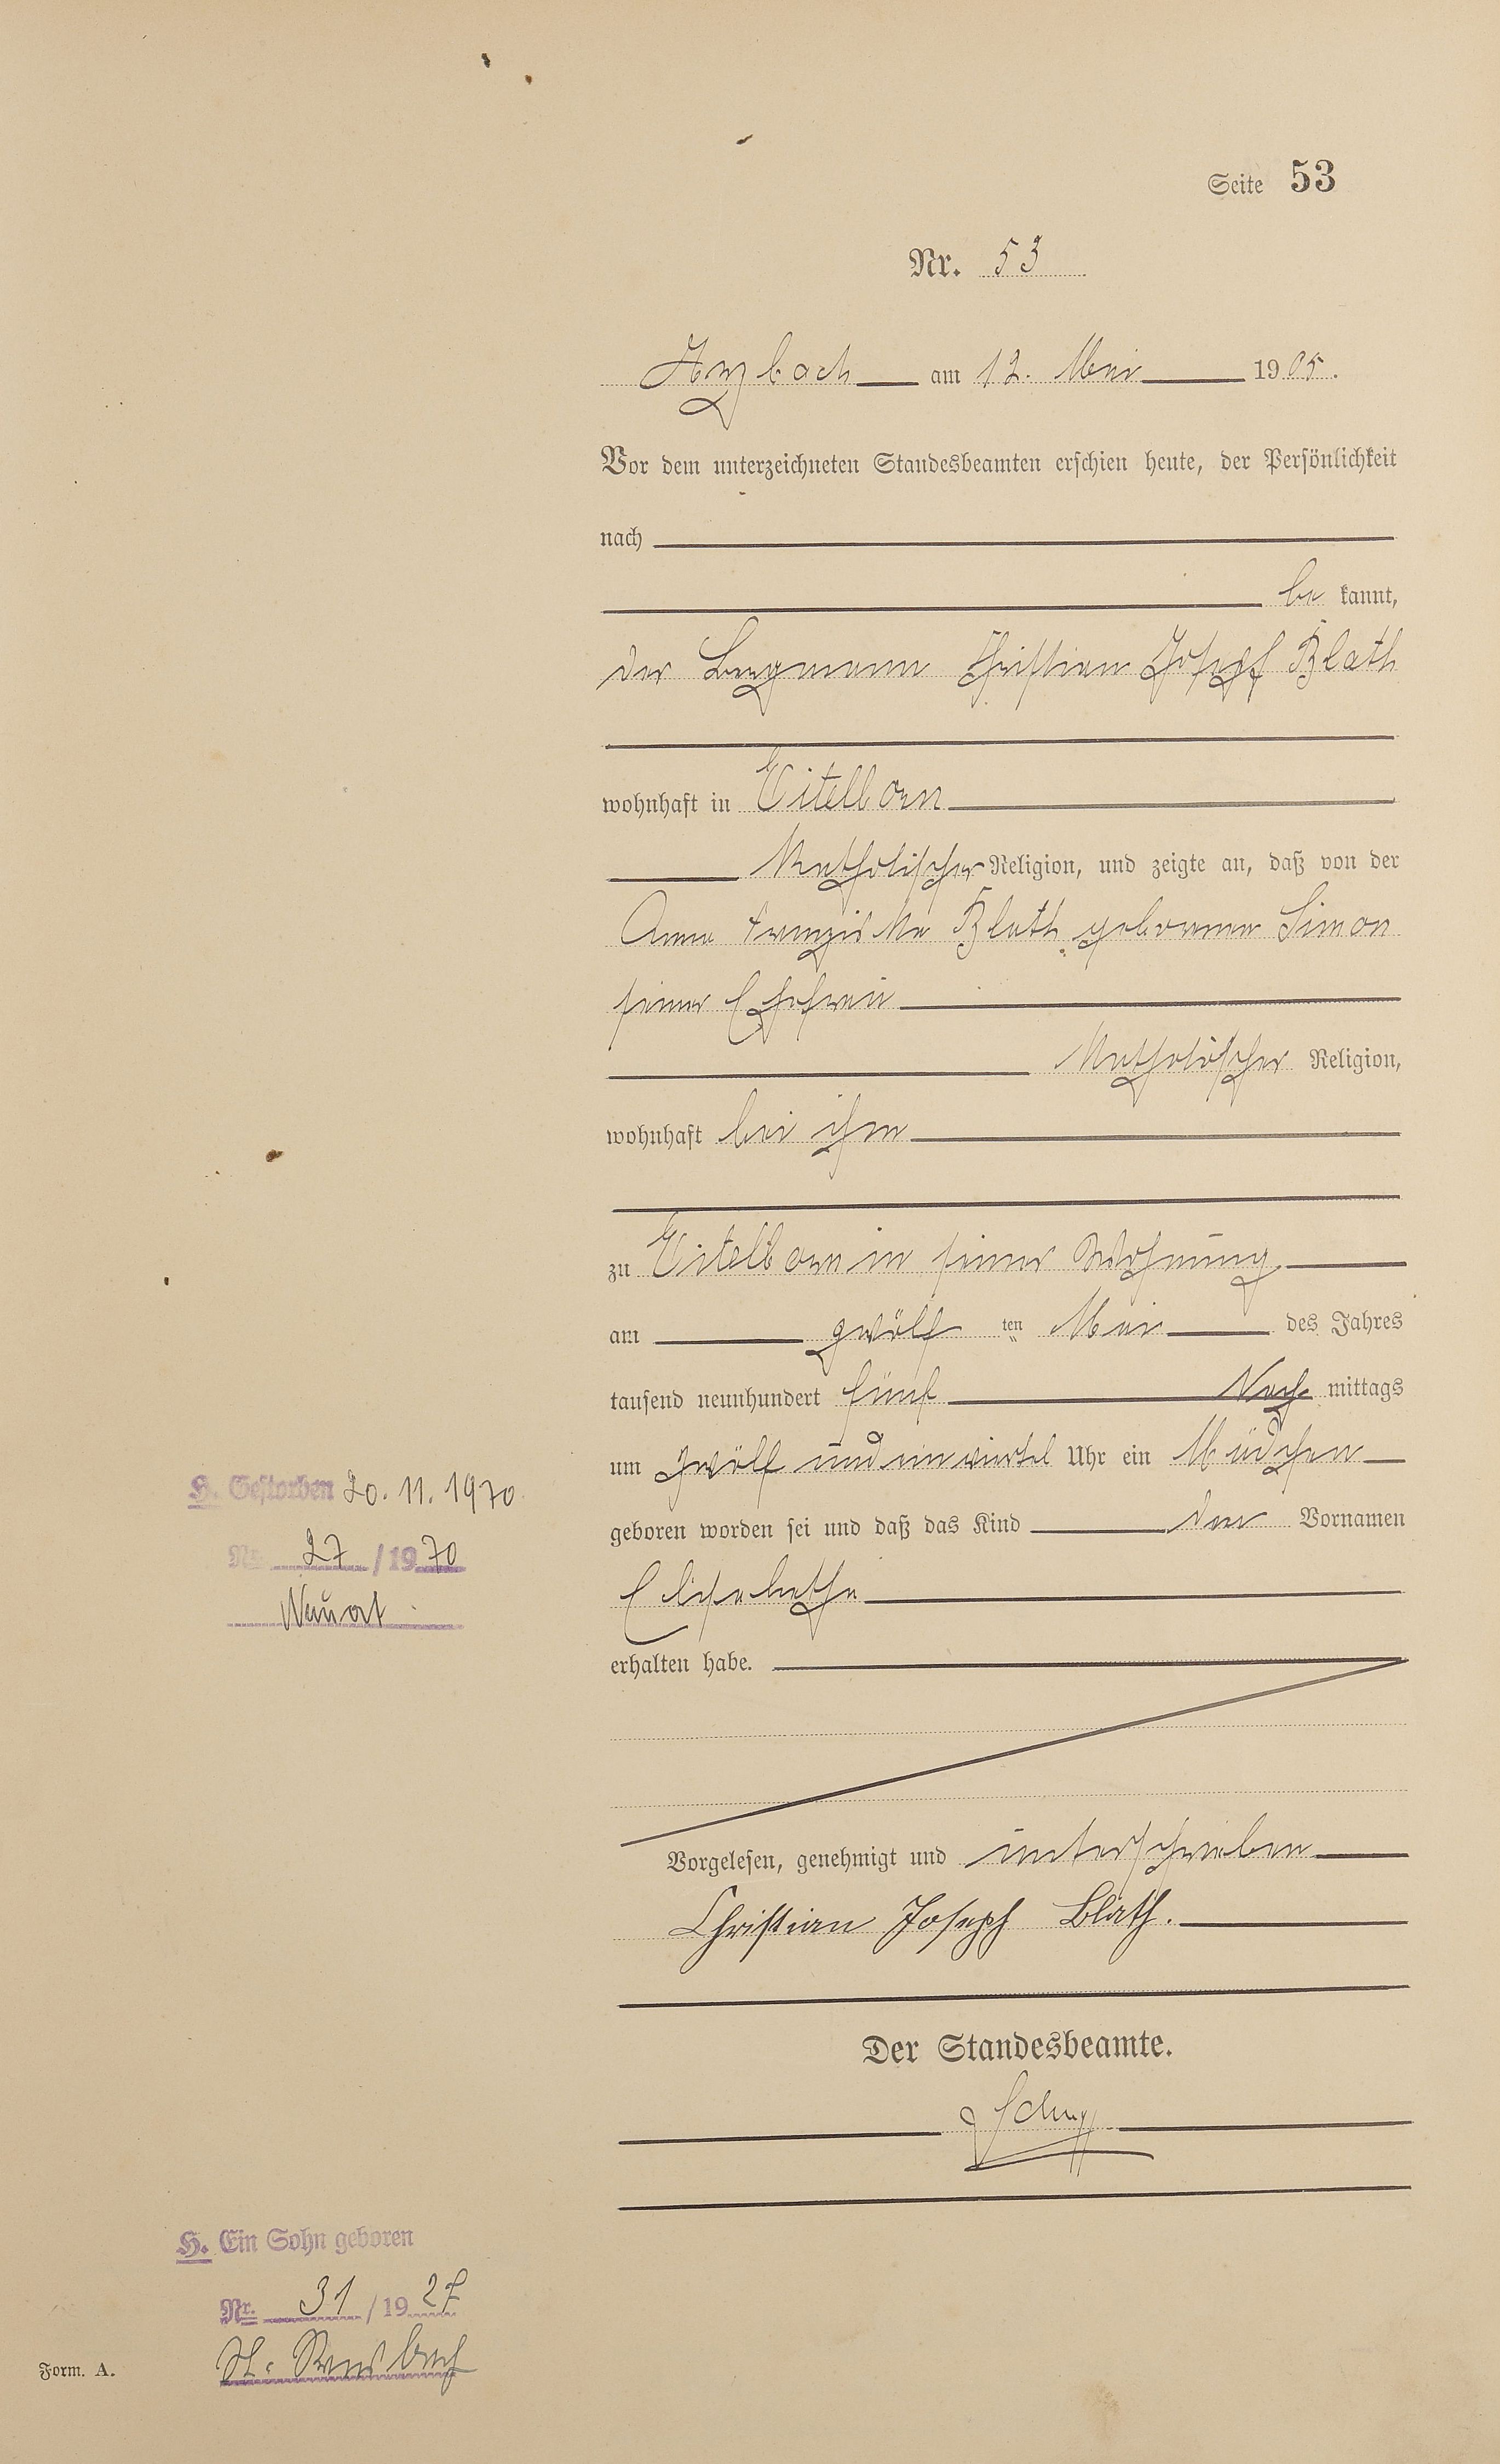 Seite 53
Nr. 53
Arzbach am 12. Mai 1905.
Vor dem unterzeichneten Standesbeamten erschien heute, der Persönlichkeit
nach
be kannt,
der Bergmann Christian Josepf Blath
wohnhaft in Eitelborn
Katholischer Religion, und zeigte an, daß von der
Anna Franziska Blath, geborenen Simon
seiner Ehefrau
Katholischer Religion,
wohnhaft bei ihm
zu Eitelborn in seiner Wohnung
am zwölf ten Mai des Jahres
tausend neunhundert fünf Nach mittags
um zwölf und ein viertel Uhr ein Mädchen
geboren worden sei und daß das Kind den Vornamen
Elisabetha
erhalten habe.
Vorgelesen, genehmigt und unterschrieben
Christian Joseph Blath.
Der Standesbeamte.
H. Gestorben 20.11.1970
Nr. 27 / 19 70
H. Ein Sohn geboren
Nr. 31 / 19 27
Form. A.